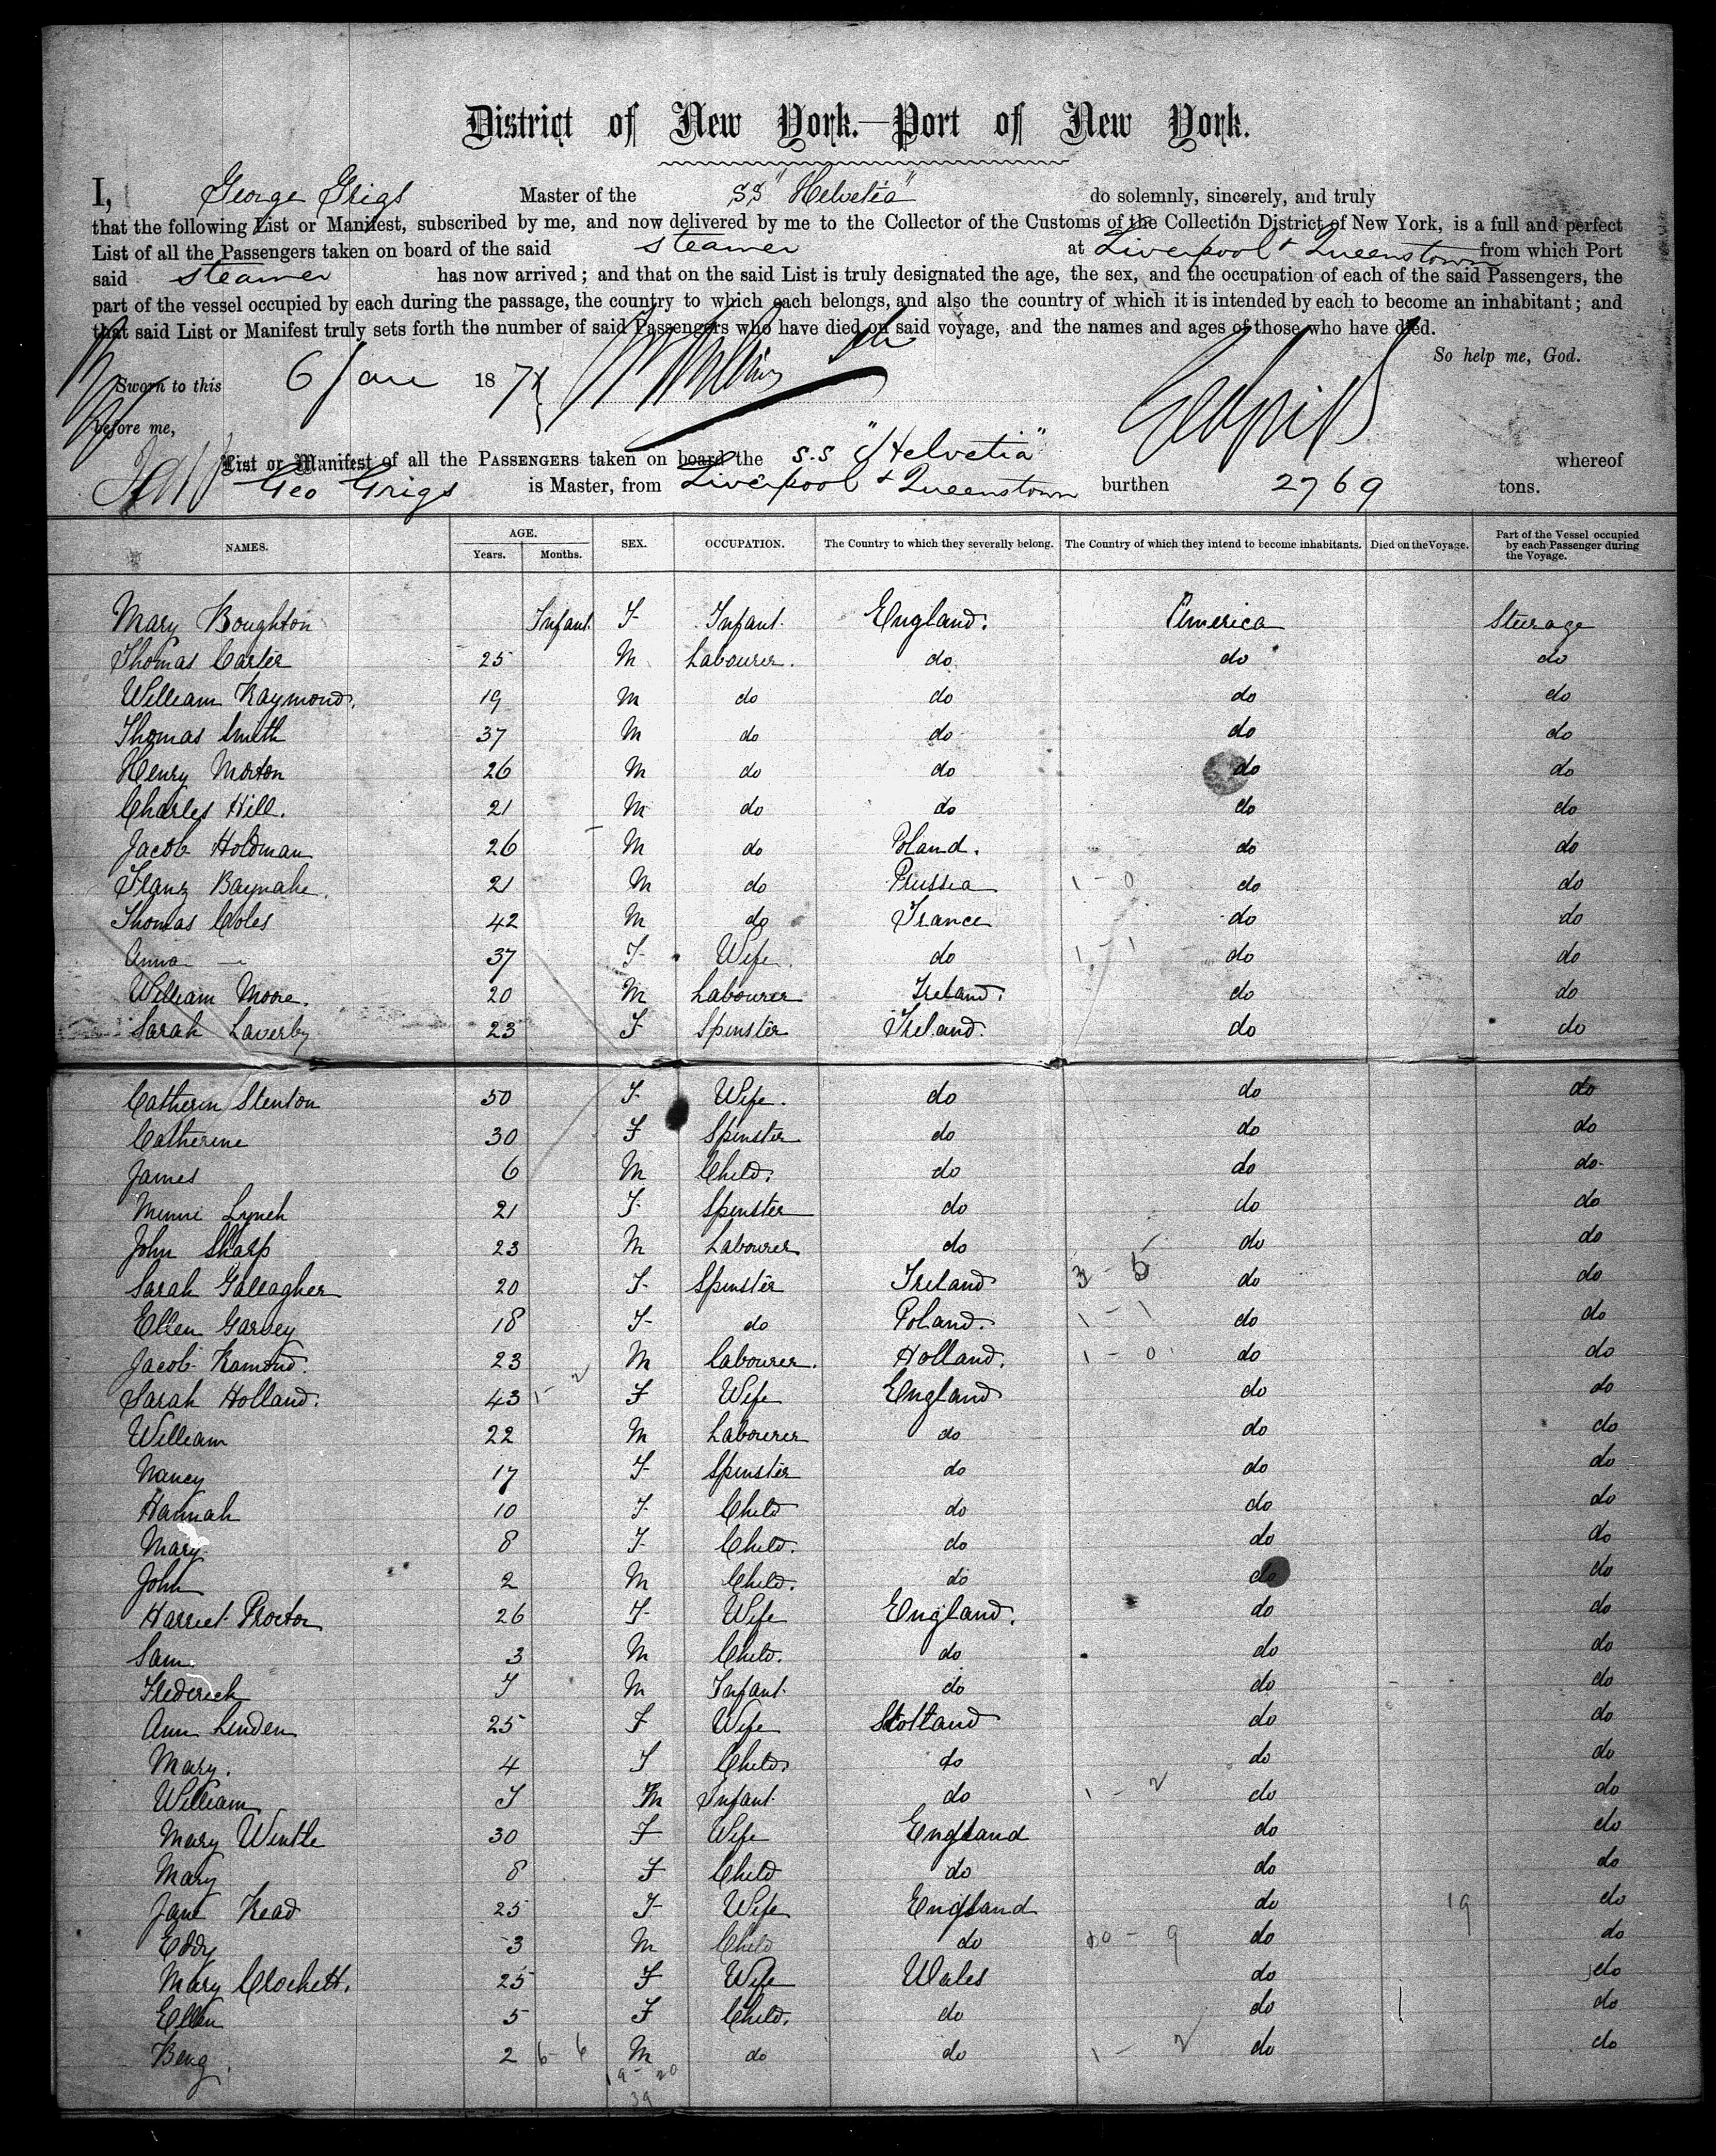 District of New York.—Port of New York.
I, George Grigs Master of the SS "Helvetia" do solemnly, sincerely, and truly
that the following List or Manifest, subscribed by me, and now delivered by me to the Collector of the Customs of the Collection District of New York, is a full and perfect
List of all the Passengers taken on board of the said steamer at Liverpool & Queenstown from which Port
said steamer has now arrived; and that on the said List is truly designated the age, the sex, and the occupation of each of the said Passengers, the
part of the vessel occupied by each during the passage, the country to which each belongs, and also the country of which it is intended by each to become an inhabitant; and
that said List or Manifest truly sets forth the number of said Passengers who have died on said voyage, and the names and ages of those who have died.
So help me, God.
Sworn to this 6 Jan 187
before me,
List or Manifest of all the PASSENGERS taken on board the S.S "Helvetia" whereof
Geo Grigs is Master, from Liverpool & Queenstown burthen 2769 tons.
NAMES. AGE. Years. Months. SEX. OCCUPATION. The Country to which they severally belong. The Country of which they intend to become inhabitants. Died on the Voyage. Part of the Vessel occupied by each Passenger during the Voyage.
Mary Boughton Infant F Infant. England. America Steerage
Thomas Carter 25 M Labourer. do do do
William Raymond. 19 M do do do do
Thomas Smith 37 M do do do do
Henry Morton 26 M do do do do
Charles Hill. 21 M do do do do
Jacob Holdman 26 M do Poland. do do
Franz 21 M do Prussia 1 - 0 do do
Thomas Coles 42 M do France do do
Anna — 37 F Wife. do 1 - 1 do do
William Moore. 20 M Labourer Ireland. do do
Sarah Laverby 23 F Spinster Ireland. do do
Catherin Stenton 50 F Wife. do do do
Catherine 30 F Spinster do do do
James 6 M Child. do do do
Minni Lynch 21 F Spinster do do do
John Sharp 23 M Labourer do do do
Sarah Gallagher 20 F Spinster Ireland 3 - 5 do do
Ellen Garvey 18 F do Poland. 1 - 1 do do
Jacob Ramond. 23 M Labourer. Holland. 1 - 0 do do
Sarah Holland. 43 1 - 2 F Wife England do do
William 22 M Labourer do do do
Nancy 17 F Spinster do do do
Hannah 10 F Child do do do
Mary 8 F Child. do do do
John 2 M Child. do do do
Harriet Proctor 26 F Wife England. do do
Sam 3 M Child. do do do
Frederick I M Infant. do do do
Ann Linden 25 F Wife Scotland do do
Mary. 4 F Child. do do do
William I M Infant. do 1 - 2 do do
Mary Wintle 30 F Wife England do do
Mary 8 F Child do do do
Jane Read 25 F Wife England do 19 do
Eddy 3 M Child do 10 - 9 do do
Mary Crockett. 25 F Wife Wales do do
Ellen 5 F Child. do do 1 do
Benj. 2 6 - 6 M do do 1 - 2 do do
19 - 20
39